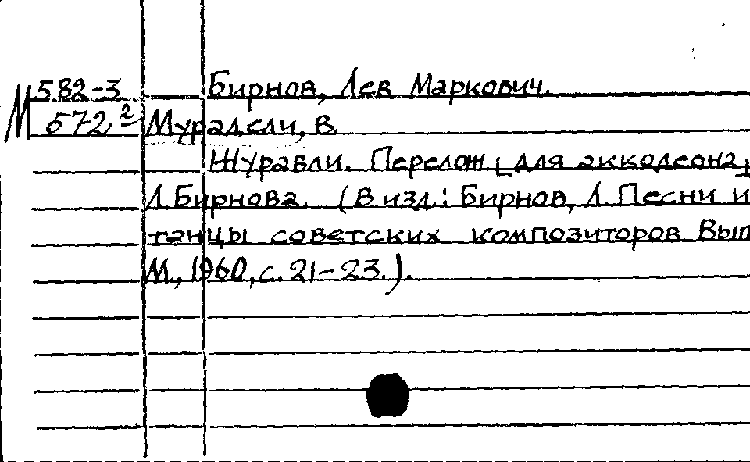 М 582-3 Бирнов, Лев Маркович.
572² Мурадели, В.
Журавли. Перелож. для аккодеона
Л. Бирнова. (В изд.: Бирнов, Л. Песни и
танцы советских композиторов Вып
М., 1960, с. 21-23.).